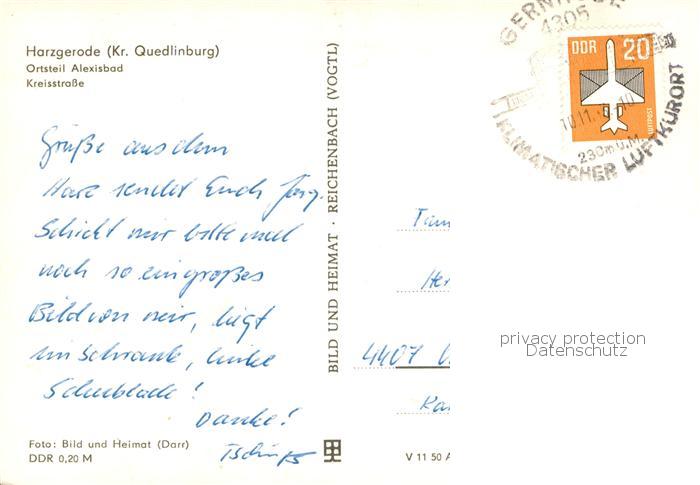 Harzgerode (Kr. Quedlinburg)
Ortsteil Alexisbad
Kreisstraße
Grüße aus dem
Harz sendet Euch Jörg.
Schickt mir bitte mal
noch so ein großes
Bild von mir, liegt
im Schrank, linke
Schublade!
Danke!
Tschüß
Foto: Bild und Heimat (Darr)
DDR 0,20 M
BILD UND HEIMAT · REICHENBACH (VOGTL)
V 11 50 A
4305
DDR 20
LUFTPOST
10.11.
230m ü.M.
KLIMATISCHER LUFTKURORT
4407
privacy protection
Datenschutz